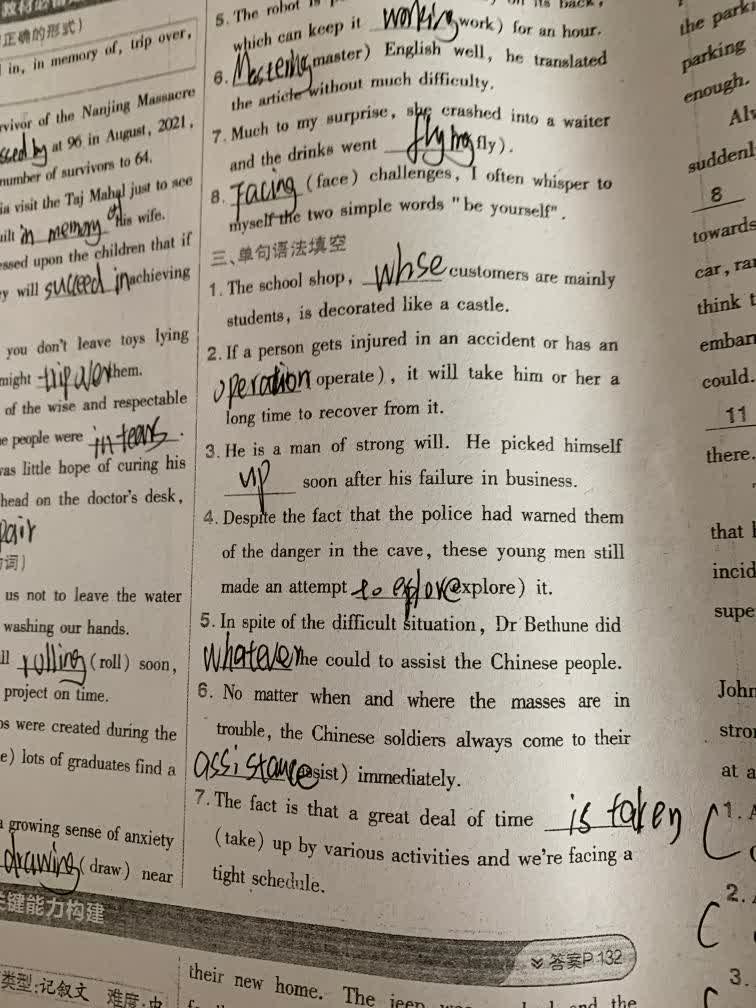 正确的形式)
in, in memory of, trip over,
rvivor of the Nanjing Massacre
ssed by at 96 in August, 2021,
number of survivors to 64.
ia visit the Taj Mahal just to see
uilt in memory of his wife.
essed upon the children that if
y will succeed in achieving
you don't leave toys lying
might trip over them.
of the wise and respectable
e people were in tears.
was little hope of curing his
head on the doctor's desk,
pair
词)
us not to leave the water
washing our hands.
ll rolling (roll) soon,
project on time.
os were created during the
e) lots of graduates find a
a growing sense of anxiety
drawing (draw) near
关键能力构建
类型:记叙文 难度:中
5. The robot is on its back,
which can keep it working work) for an hour.
6. Mastering master) English well, he translated
the article without much difficulty.
7. Much to my surprise, she crashed into a waiter
and the drinks went flying fly).
8. Facing (face) challenges, I often whisper to
myself the two simple words "be yourself".
三、单句语法填空
1. The school shop, whse customers are mainly
students, is decorated like a castle.
2. If a person gets injured in an accident or has an
operation operate), it will take him or her a
long time to recover from it.
3. He is a man of strong will. He picked himself
up soon after his failure in business.
4. Despite the fact that the police had warned them
of the danger in the cave, these young men still
made an attempt to explore explore) it.
5. In spite of the difficult situation, Dr Bethune did
whatever he could to assist the Chinese people.
6. No matter when and where the masses are in
trouble, the Chinese soldiers always come to their
assistance assist) immediately.
7. The fact is that a great deal of time is taken
(take) up by various activities and we're facing a
tight schedule.
答案P.132
their new home. The jeep
and the
the park
parking
enough.
suddenl
8
towards
car, ra
think t
embar
could.
11
there.
that
incid
supe
John
stro
at a
C 1. A
C 2.
C 3.